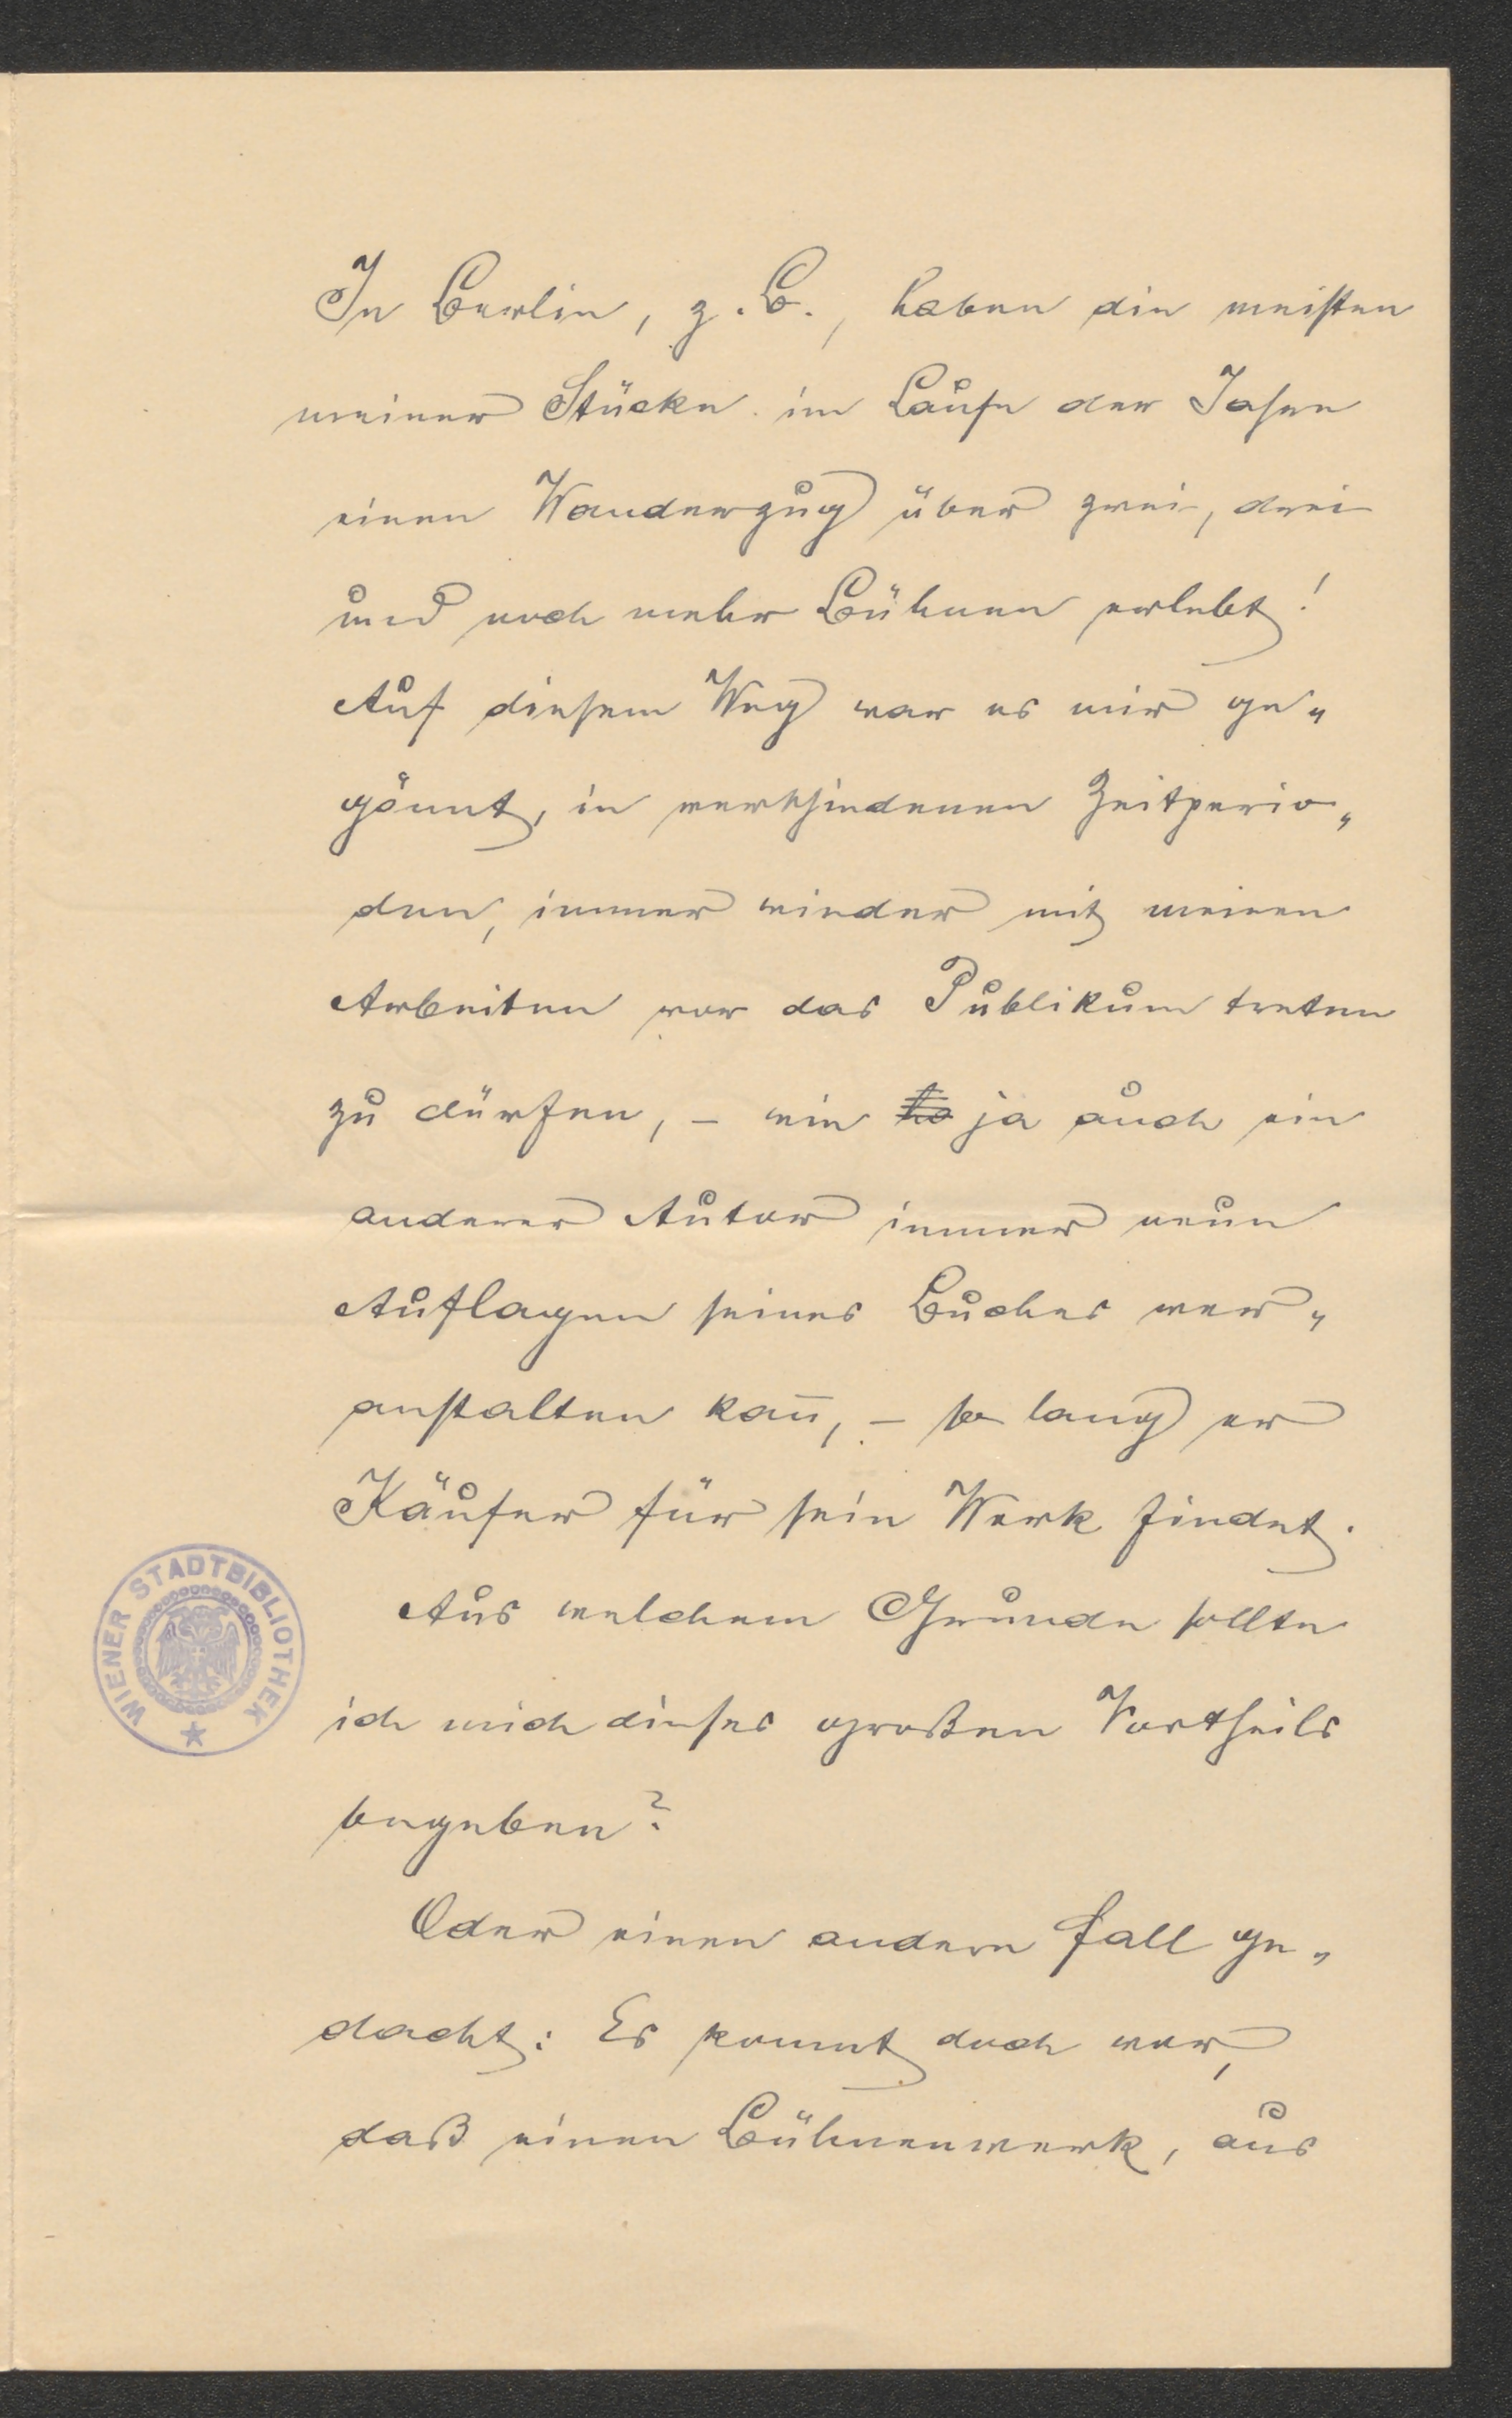 In Berlin, z. B., haben die meisten
meiner Stücke im Laufe der Jahre
einen Wanderzug über zwei, drei
und noch mehr Bühnen erlebt!
Auf diesem Weg war es mir ge„
gönnt, in verschiedenen Zeitperio„
den, immer wieder mit meinen
Arbeiten vor das Publikum treten
zu dürfen, – wie ja auch ein
anderer Autor immer neue
Auflagen seines Buches ver„
anstalten kan̄, – so lang er
Käufer für sein Werk findet.
Aus welchem Grunde sollte
ich mich dieses großen Vortheils
begeben?
Oder einen andern Fall ge„
dacht: Es kommt doch vor,
daß einen Bühnenwerk, aus
WIENER STADTBIBLIOTHEK